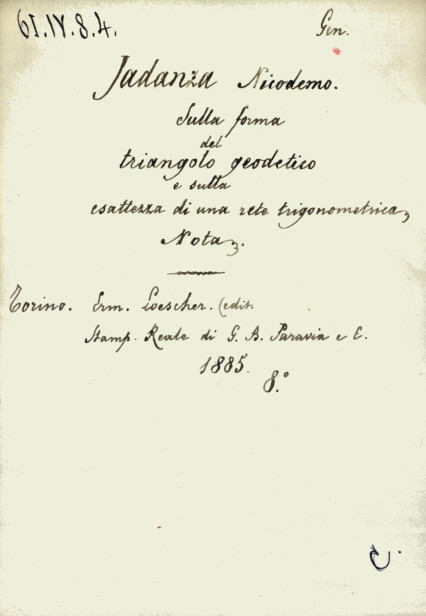 61.IV.8.4.
Gen.
Jadanza Nicodemo.
Sulla forma
del
triangolo geodetico
e sulla
esattezza di una rete trigonometrica,
Nota.
Torino. Erm. Loescher. (edit.
Stamp. Reale di G. B. Paravia e C.
1885.
8.°